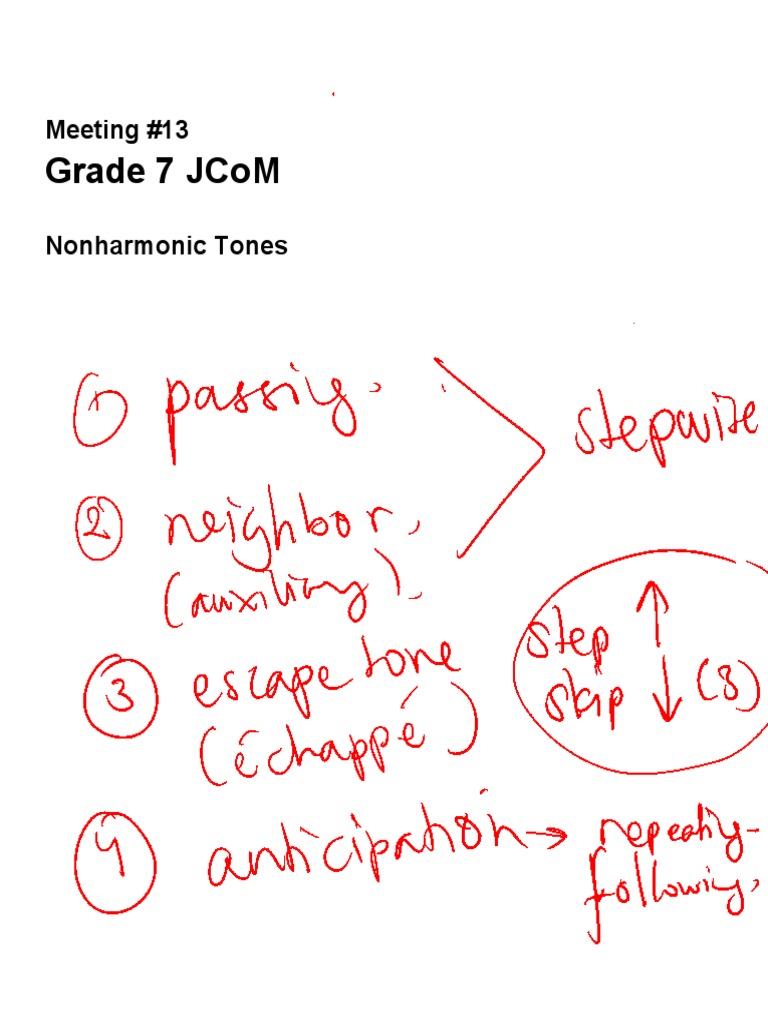 Meeting #13
Grade 7 JCoM
Nonharmonic Tones
① passing.
stepwise
② neighbor.
(auxiliary).
③ escape tone
(échappé)
step ↑
skip ↓ (3)
④ anticipation → repeating-
following.